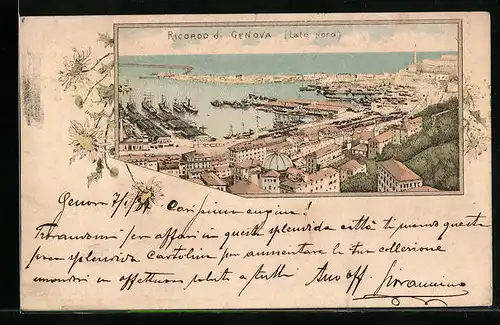 RICORDO di GENOVA (Lato Nord)
Genova 7/1/ Carissima cugina!
Trovandomi per affari in questa splendida città ti mando questa
pure splendida cartolina per aumentare la tua collezione
unendoti un affettuoso saluto a tutti Tuo aff. Giovannino